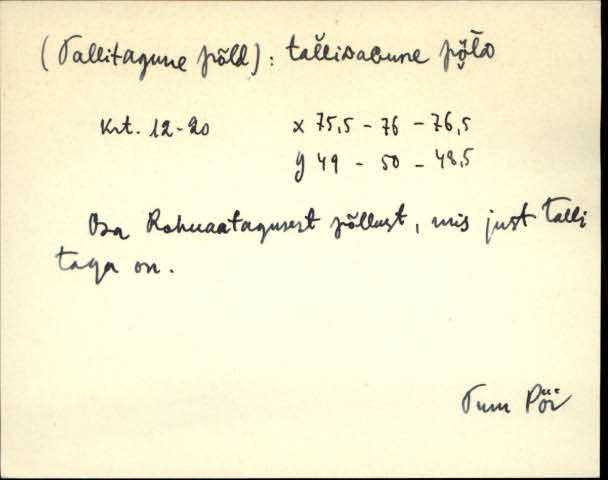 (Tallitagune põld) : tallisaGune põlD
Krt. 12-20 x 75,5 - 76 - 76,5
y 49 - 50 - 48,5
Osa Rohuaatagusest põllust, mis just talli
taga on.
Pöi